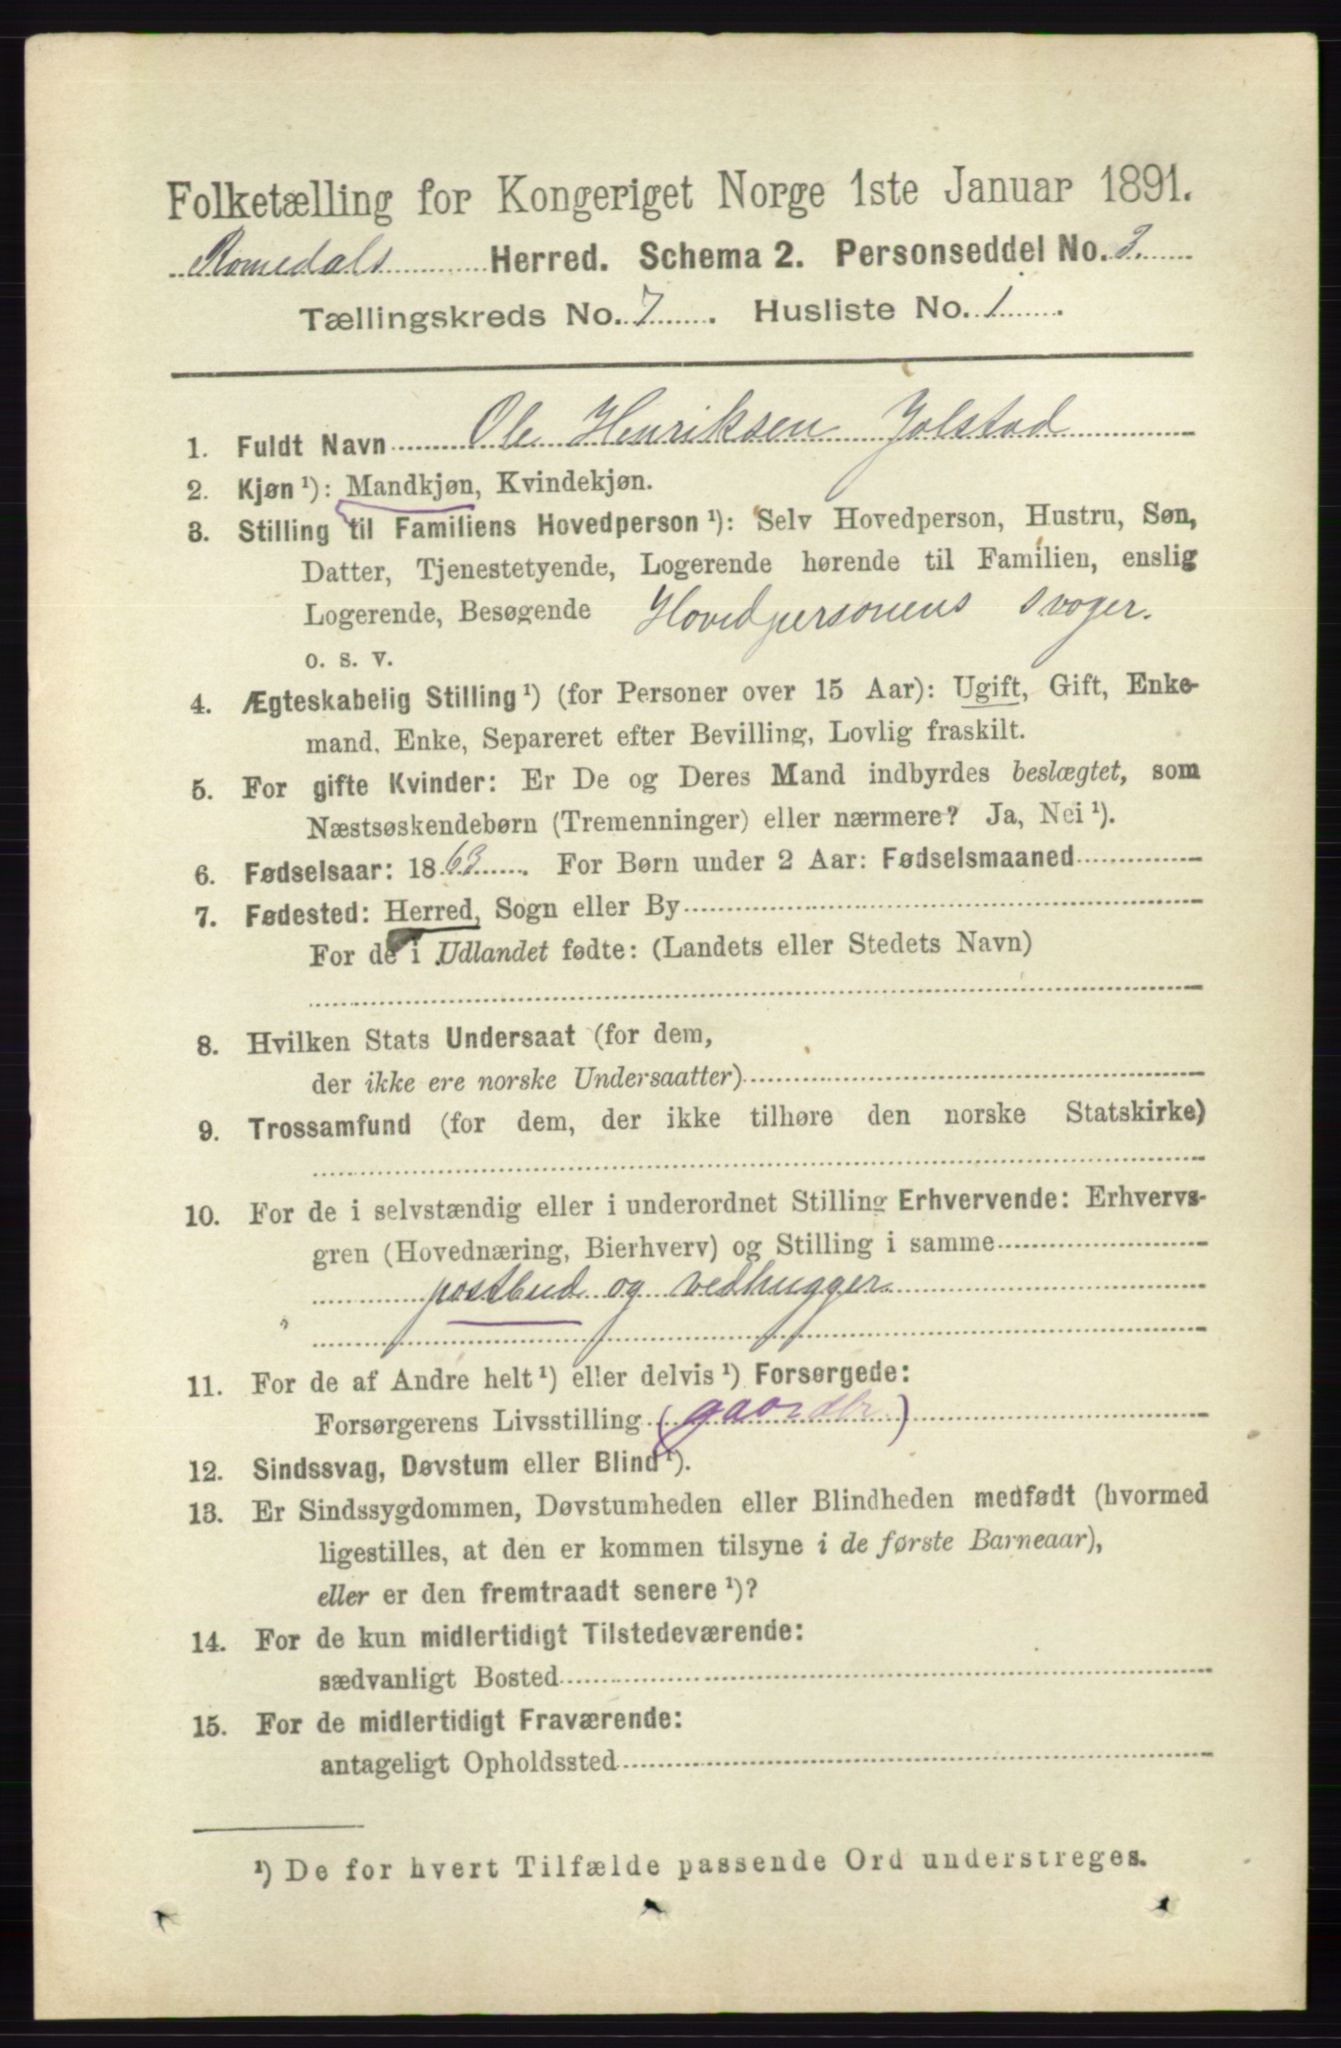 Folketælling for Kongeriget Norge 1ste Januar 1891.
Romedals Herred. Schema 2. Personseddel No. 3.
Tællingskreds No. 7. Husliste No. 1.
1. Fuldt Navn Ole Henriksen Jolstad
2. Kjøn ¹): Mandkjøn, Kvindekjøn.
3. Stilling til Familiens Hovedperson ¹): Selv Hovedperson, Hustru, Søn,
Datter, Tjenestetyende, Logerende hørende til Familien, enslig
Logerende, Besøgende Hovedpersonens svoger.
o. s. v.
4. Ægteskabelig Stilling ¹) (for Personer over 15 Aar): Ugift, Gift, Enke-
mand, Enke, Separeret efter Bevilling, Lovlig fraskilt.
5. For gifte Kvinder: Er De og Deres Mand indbyrdes beslægtet, som
Næstsøskendebørn (Tremenninger) eller nærmere? Ja, Nei ¹).
6. Fødselsaar: 1863. For Børn under 2 Aar: Fødselsmaaned
7. Fødested: Herred, Sogn eller By
For de i Udlandet fødte: (Landets eller Stedets Navn)
8. Hvilken Stats Undersaat (for dem,
der ikke ere norske Undersaatter)
9. Trossamfund (for dem, der ikke tilhøre den norske Statskirke)
10. For de i selvstændig eller i underordnet Stilling Erhvervende: Erhvervs-
gren (Hovednæring, Bierhverv) og Stilling i samme
postbud og vedhugger
11. For de af Andre helt ¹) eller delvis ¹) Forsørgede:
Forsørgerens Livsstilling (gaardbr)
12. Sindssvag, Døvstum eller Blind ¹).
13. Er Sindssygdommen, Døvstumheden eller Blindheden medfødt (hvormed
ligestilles, at den er kommen tilsyne i de første Barneaar),
eller er den fremtraadt senere ¹)?
14. For de kun midlertidigt Tilstedeværende:
sædvanligt Bosted
15. For de midlertidigt Fraværende:
antageligt Opholdssted
¹) De for hvert Tilfælde passende Ord understreges.